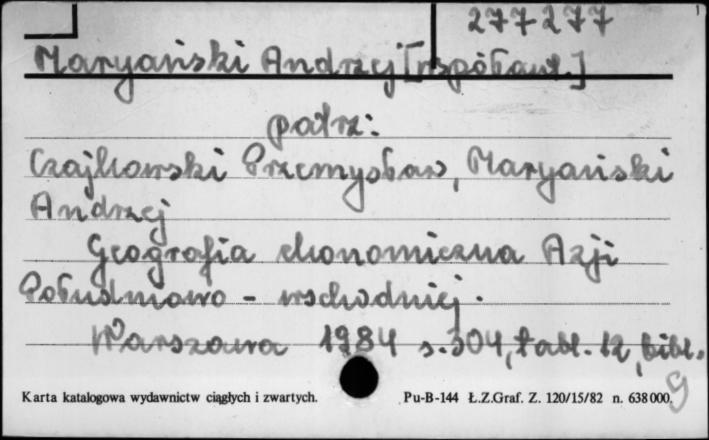 277277
Maryański Andrzej [współaut.]
patrz:
Czajkowski Przemysław, Maryański
Andrzej
Geografia ekonomiczna Azji
Południowo - wschodniej.
Warszawa 1984 s. 304, tabl. 12, bibl.
Karta katalogowa wydawnictw ciągłych i zwartych. Pu-B-144 Ł.Z.Graf. Z. 120/15/82 n. 638 000. 9